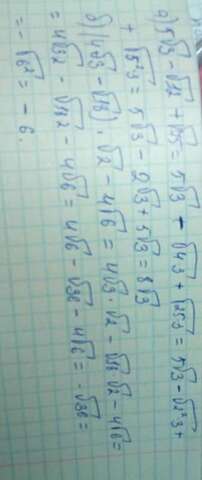 а) 5√3 - √12 + √75 = 5√3 - √4·3 + √25·3 = 5√3 - √2²·3 +
+ √5²·3 = 5√3 - 2√3 + 5√3 = 8√3
б) (4√3 - √18) · √2 - 4√6 = 4√3 · √2 - √18 √2 - 4√6 =
= 4√3·2 - √18·2 - 4√6 = 4√6 - √36 - 4√6 = - √36 =
= - √6² = - 6.